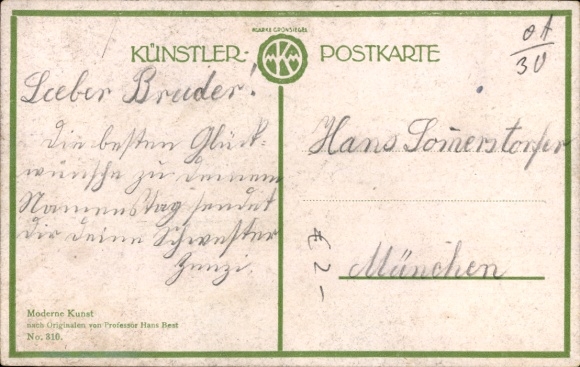 MARKE GRÜNSIEGEL
KÜNSTLER- POSTKARTE
Lieber Bruder!
Die besten Glück-
wünsche zu deinem
Namenstag sendet
dir deine Schwester
Zenzi.
Moderne Kunst
nach Originalen von Professor Hans Best
No. 310.
Hans Som̅erstorfer
München
€ 2 –
01
30